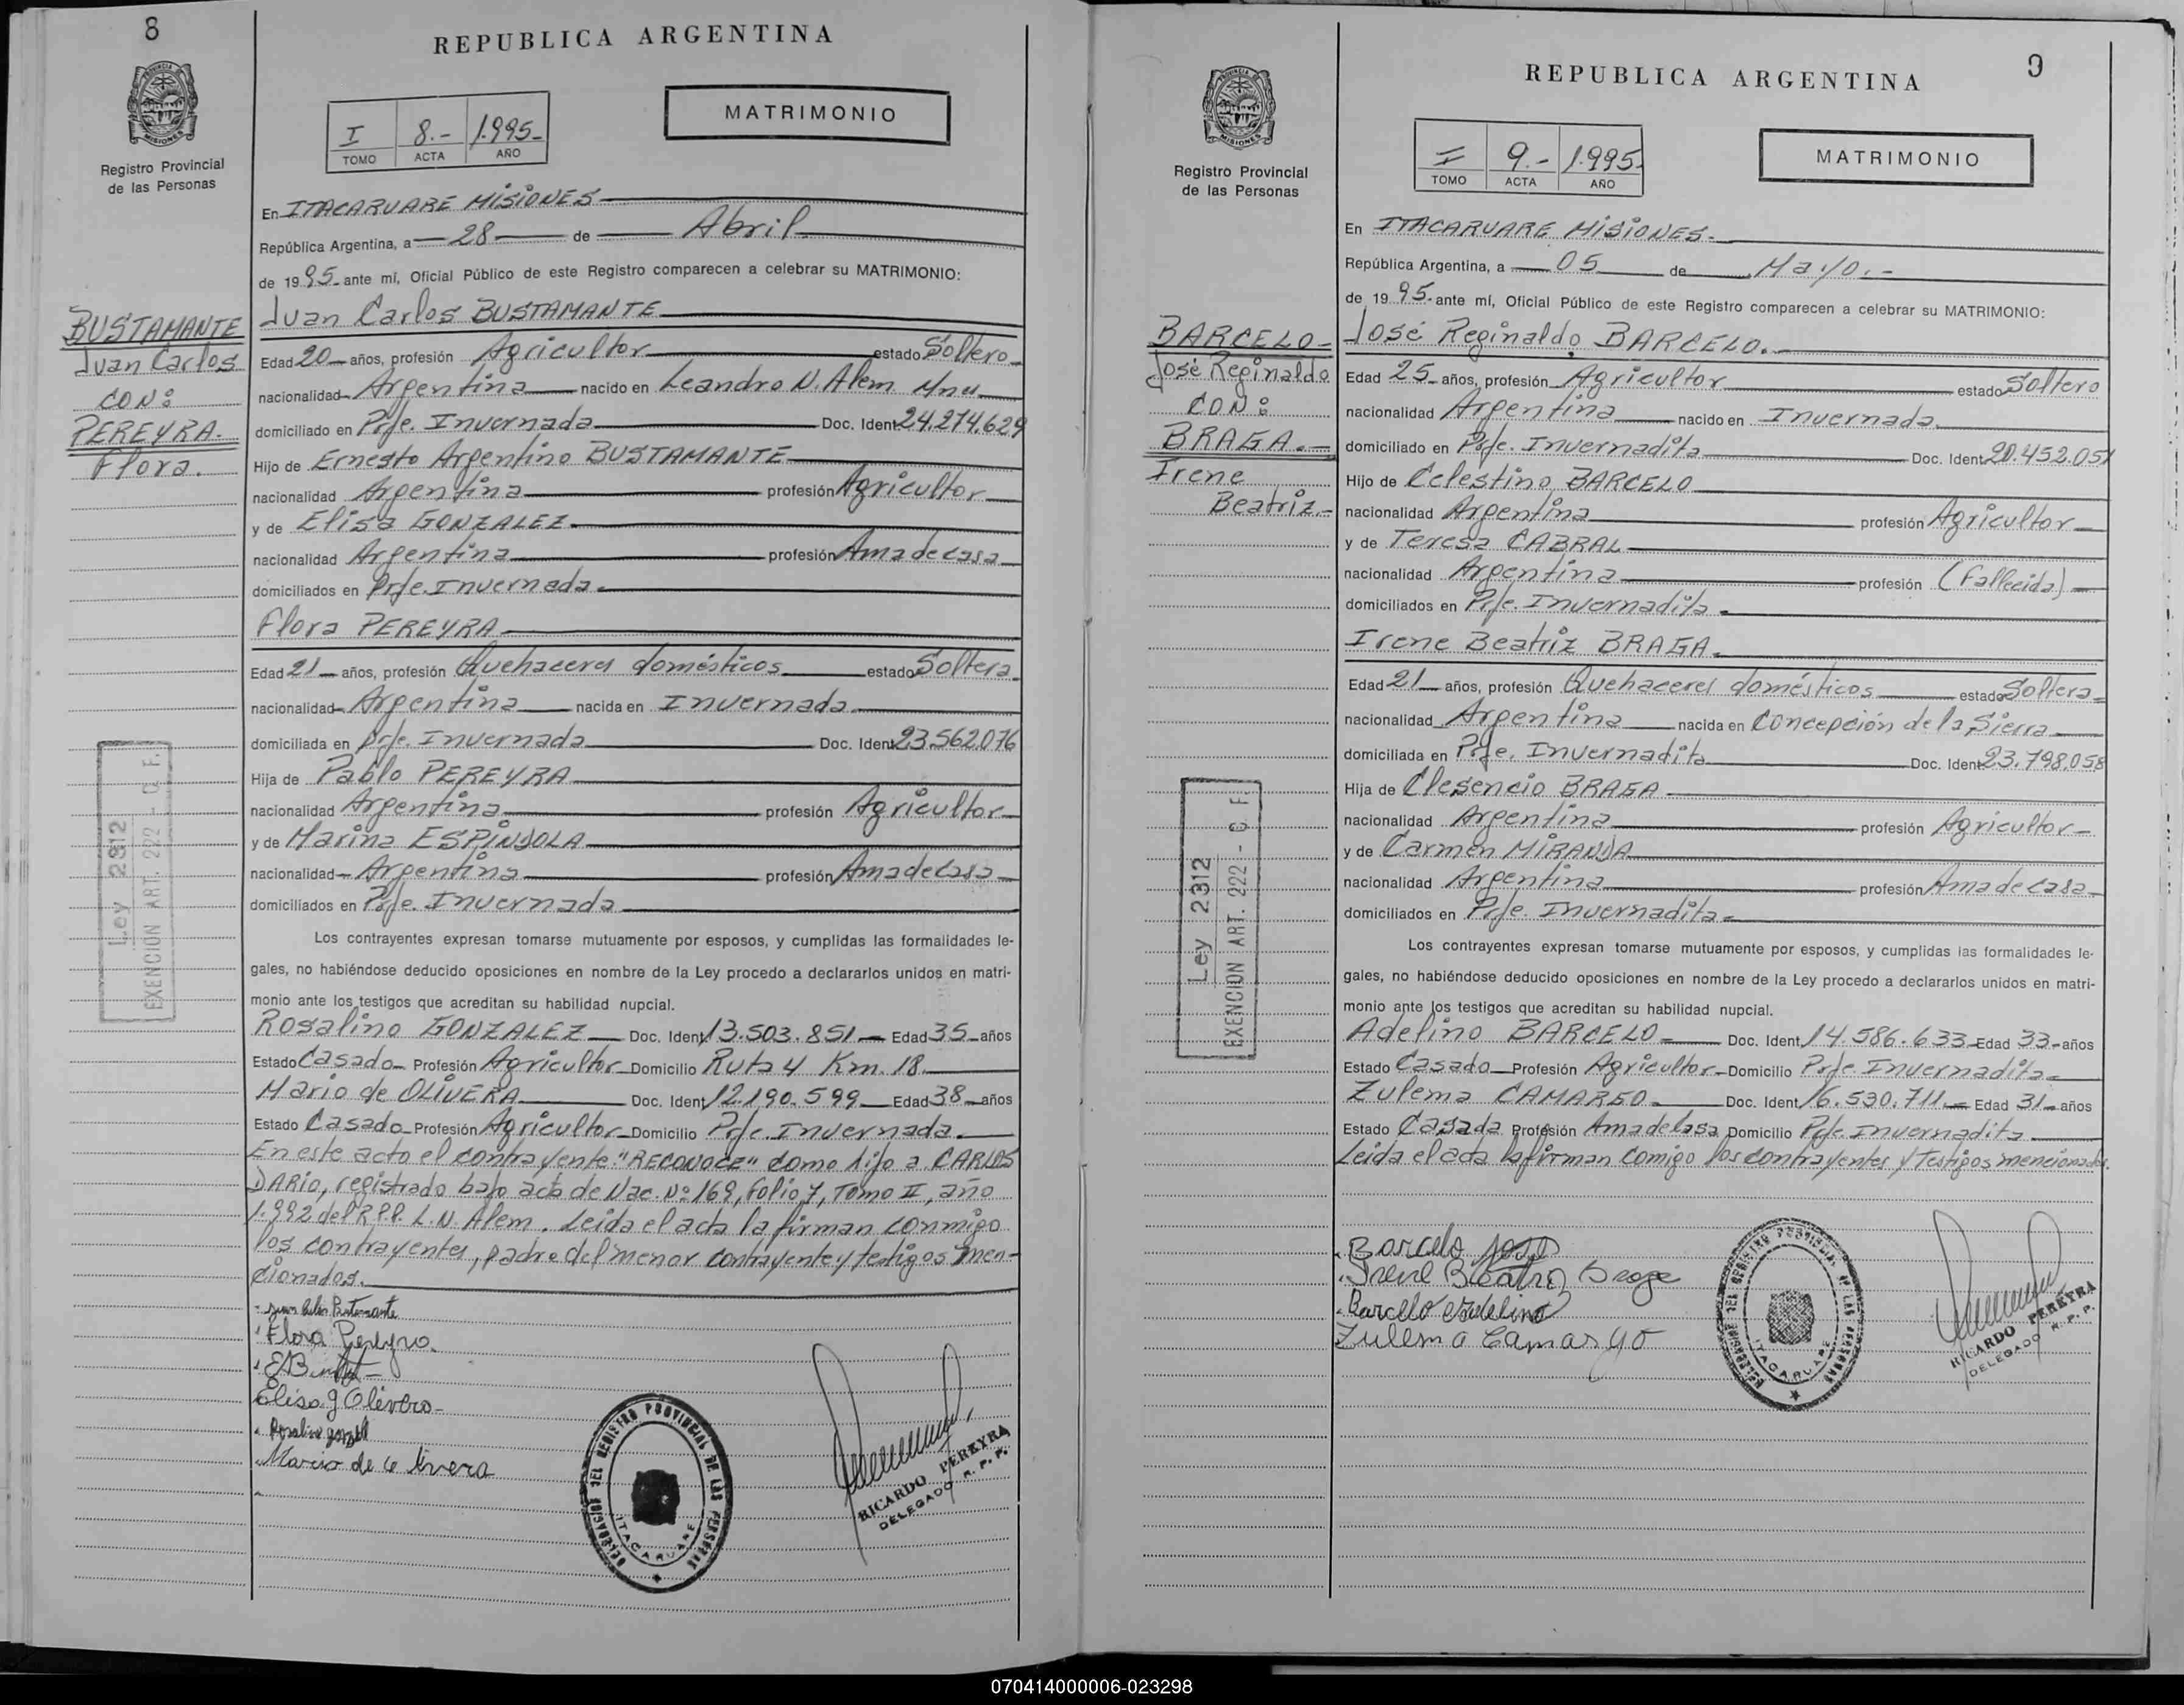 8
REPUBLICA ARGENTINA
PROVINCIA DE MISIONES
Registro Provincial
de las Personas
I 8.- 1.995-
TOMO ACTA AÑO
MATRIMONIO
En ITACARUARE MISIONES
República Argentina, a 28 de Abril
de 1995 ante mí, Oficial Público de este Registro comparecen a celebrar su MATRIMONIO:
BUSTAMANTE
Juan Carlos
CON:
PEREYRA.
Flora.
Juan Carlos BUSTAMANTE
Edad 20 años, profesión Agricultor estado Soltero
nacionalidad Argentina nacido en Leandro N. Alem Mnes.
domiciliado en Pje. Invernada Doc. Ident. 24.274.629
Hijo de Ernesto Argentino BUSTAMANTE
nacionalidad Argentina profesión Agricultor
y de Elisa GONZALEZ
nacionalidad Argentina profesión Ama de casa
domiciliados en Pje. Invernada
Flora PEREYRA
Edad 21 años, profesión Quehaceres domésticos estado Soltera
nacionalidad Argentina nacida en Invernada
domiciliada en Pje. Invernada Doc. Ident. 23.562.076
Hija de Pablo PEREYRA
nacionalidad Argentina profesión Agricultor
y de Marina ESPINDOLA
nacionalidad Argentina profesión Ama de casa
domiciliados en Pje. Invernada
Ley 2312
EXENCION ART. 222 - C. F.
Los contrayentes expresan tomarse mutuamente por esposos, y cumplidas las formalidades le-
gales, no habiéndose deducido oposiciones en nombre de la Ley procedo a declararlos unidos en matri-
monio ante los testigos que acreditan su habilidad nupcial.
Rosalino GONZALEZ Doc. Ident. 13.503.851 Edad 35 años
Estado Casado Profesión Agricultor Domicilio Ruta 4 Km. 18.
Mario de OLIVERA Doc. Ident. 12.190.599 Edad 38 años
Estado Casado Profesión Agricultor Domicilio Pje. Invernada.
En este acto el contrayente "RECONOCE" como hijo a CARLOS
DARIO, registrado bajo acta de Nac. Nº 169, folio 7, Tomo II, año
1.992 del R.P.P. L.N. Alem. Leida el acta la firman conmigo
los contrayentes, padre del menor contrayente y testigos men-
cionados.
Juan Carlos Bustamante
Flora Pereyra.
Elisa G Olivera
Rosalino
Mario de Olivera
DELEGACION DEL REGISTRO PROVINCIAL DE LAS PERSONAS
ITACARUARE
RICARDO PEREYRA
DELEGADO R. P. P.
9
REPUBLICA ARGENTINA
PROVINCIA DE MISIONES
Registro Provincial
de las Personas
I 9.- 1.995.
TOMO ACTA AÑO
MATRIMONIO
En ITACARUARE MISIONES.
República Argentina, a 05 de Mayo.-
de 1995 ante mí, Oficial Público de este Registro comparecen a celebrar su MATRIMONIO:
BARCELO-
José Reginaldo
CON:
BRAGA.-
Irene
Beatriz.-
José Reginaldo BARCELO.
Edad 25 años, profesión Agricultor estado Soltero
nacionalidad Argentina nacido en Invernada
domiciliado en Pje. Invernadita Doc. Ident. 20.452.051
Hijo de Celestino BARCELO
nacionalidad Argentina profesión Agricultor
y de Teresa CABRAL
nacionalidad Argentina profesión (Fallecida)
domiciliados en Pje. Invernadita
Irene Beatriz BRAGA.
Edad 21 años, profesión Quehaceres domésticos estado Soltera
nacionalidad Argentina nacida en Concepción de la Sierra
domiciliada en Pje. Invernadita Doc. Ident. 23.798.058
Hija de Clesencio BRAGA
nacionalidad Argentina profesión Agricultor
y de Carmen MIRANDA
nacionalidad Argentina profesión Ama de casa
domiciliados en Pje. Invernadita
Ley 2312
EXENCION ART. 222 - C F.
Los contrayentes expresan tomarse mutuamente por esposos, y cumplidas las formalidades le-
gales, no habiéndose deducido oposiciones en nombre de la Ley procedo a declararlos unidos en matri-
monio ante los testigos que acreditan su habilidad nupcial.
Adelino BARCELO Doc. Ident. 14.586.633 Edad 33 años
Estado Casado Profesión Agricultor Domicilio Pje. Invernadita
Zulema CAMARGO Doc. Ident. 16.530.711 Edad 31 años
Estado Casada Profesión Ama de casa Domicilio Pje. Invernadita
Leida el acta la firman comigo los contrayentes y testigos mencionados.
Barcelo José
Irene Beatriz Braga
Barcelo Adelino
Zulema Camargo
DELEGACION DEL REGISTRO PROVINCIAL DE LAS PERSONAS
ITACARUARE
RICARDO PEREYRA
DELEGADO R. P. P.
070414000006-023298